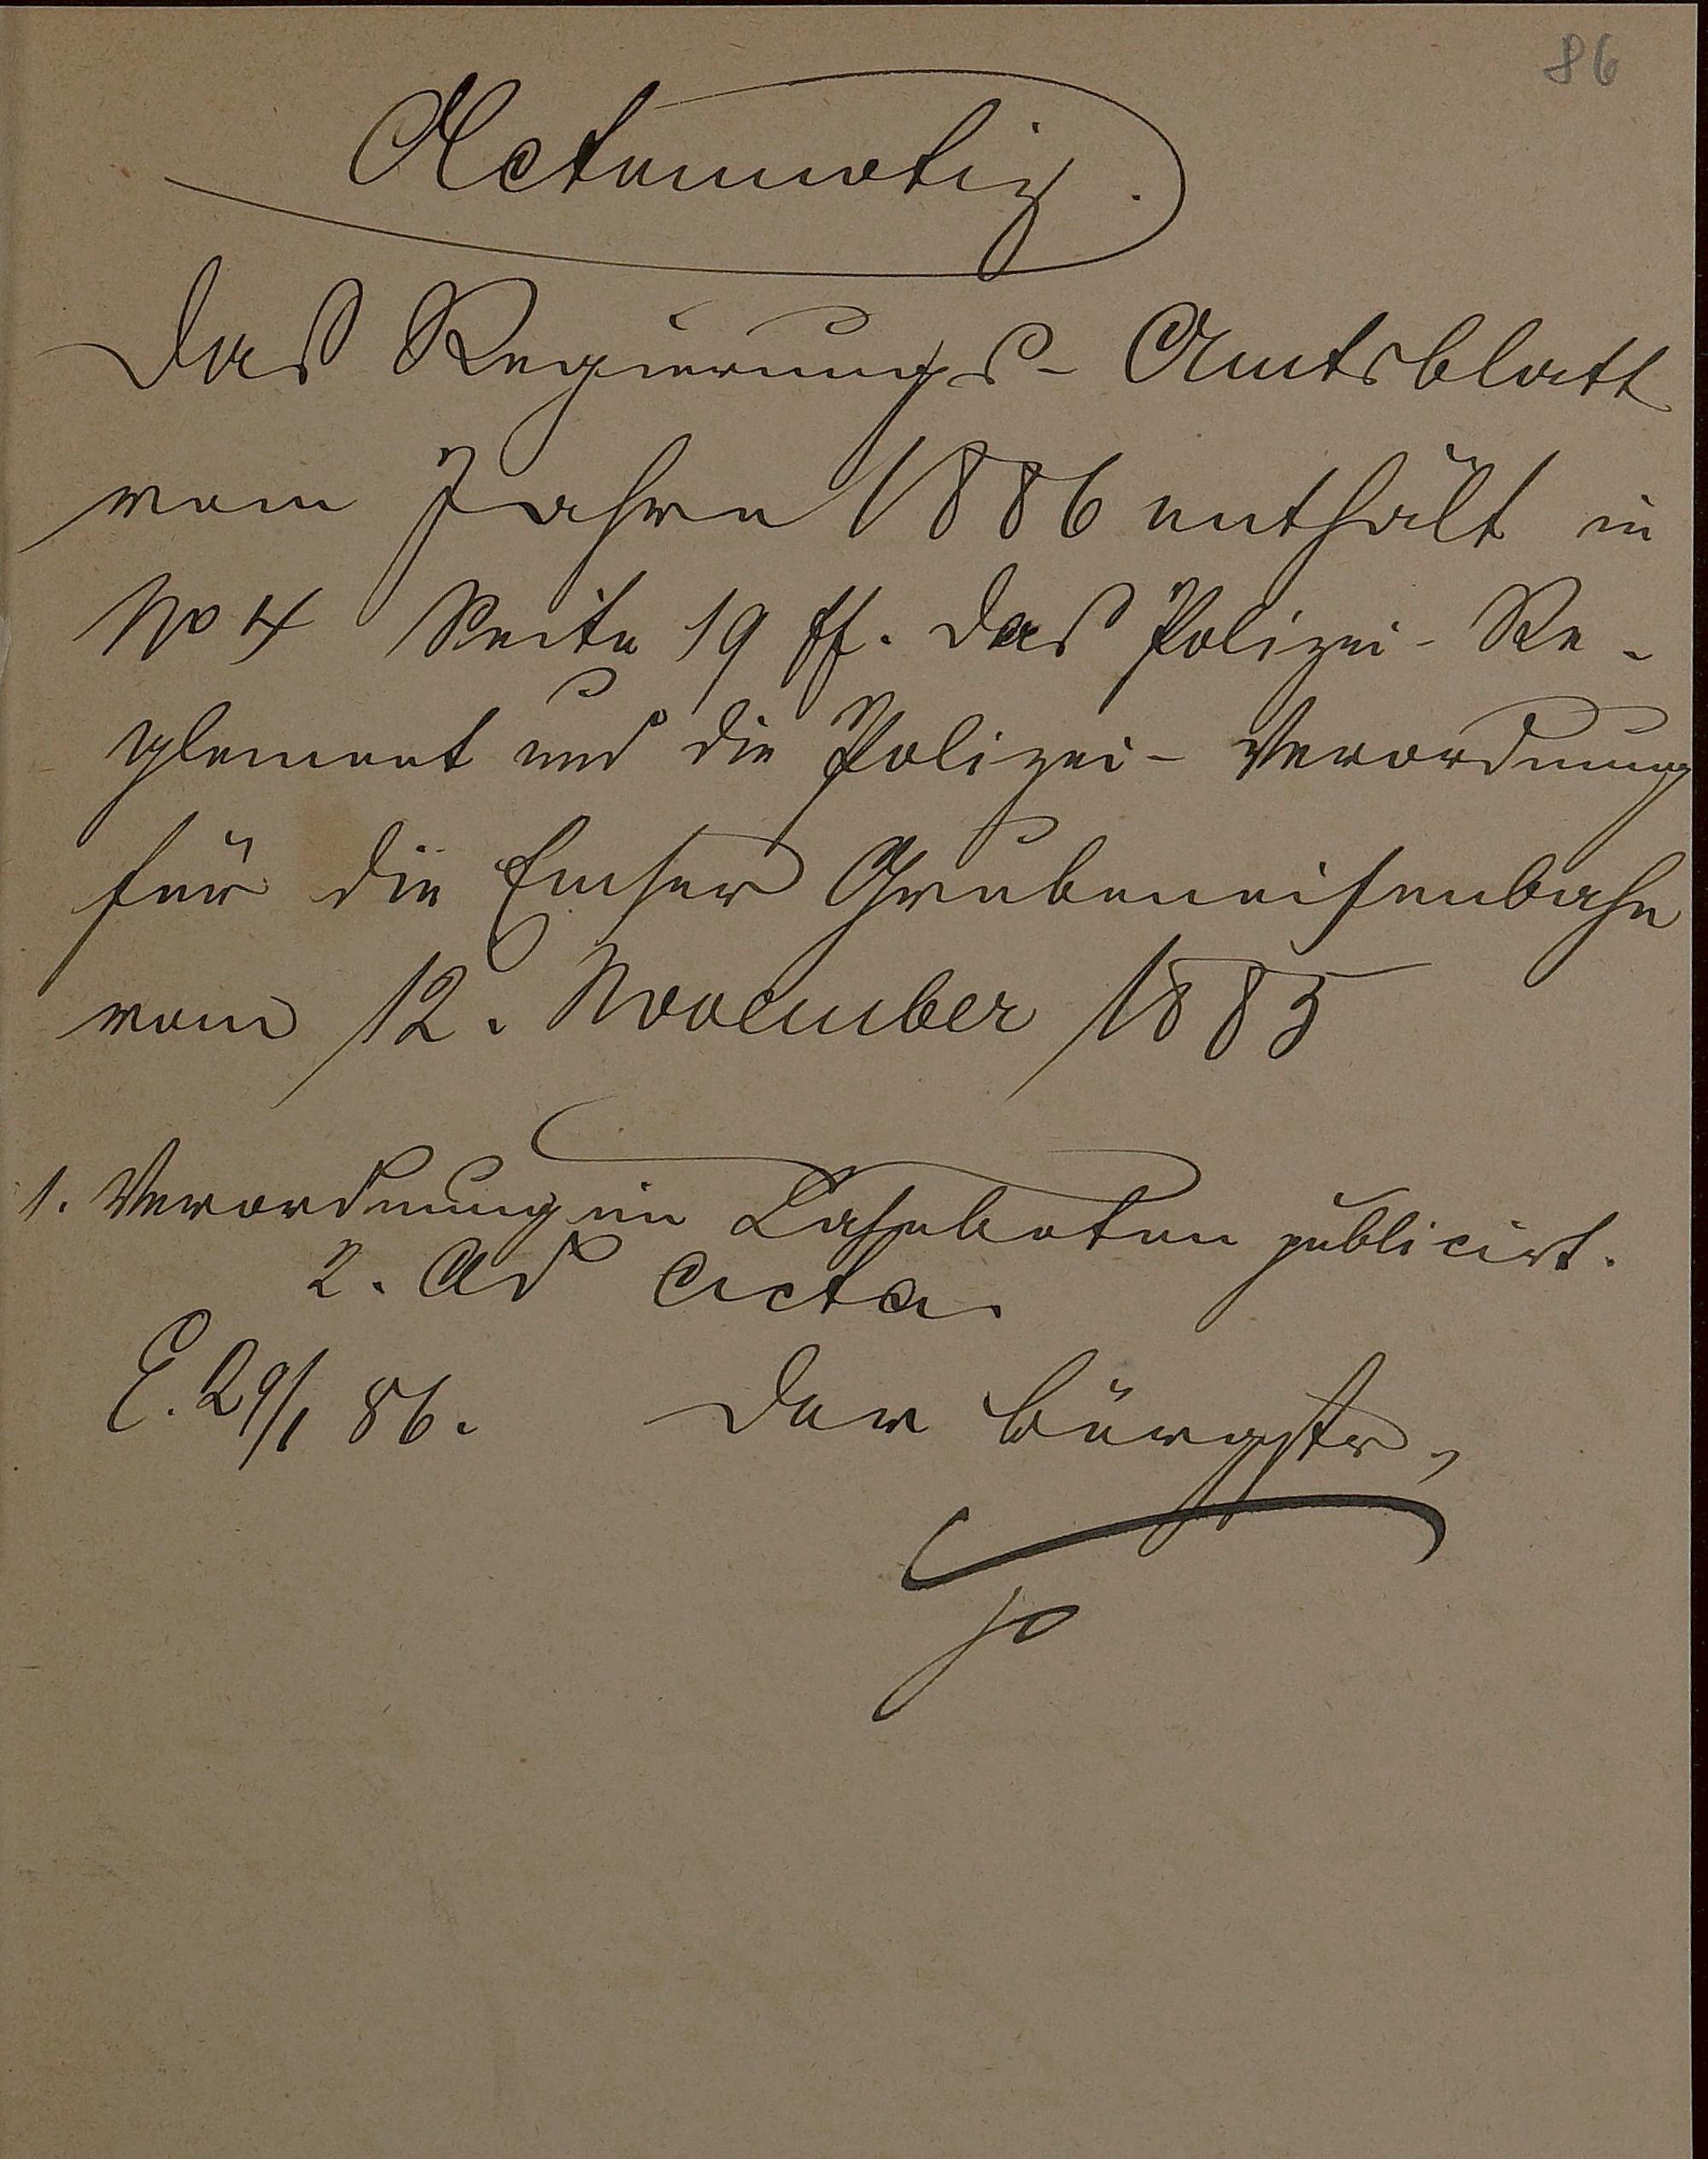 86
Actennotiz.
Das Regierungs-Amtsblatt
vom Jahre 1886 enthält in
No 4 Seite 19 ff. das Polizei-Re-
glement und die Polizei-Verordnung
für die Emser Grubeneisenbahn
vom 12. November 1885
1. Verordnung im Lahnboten publicirt.
2. Ad acta.
E. 29/1 86. Der Bürgstr,